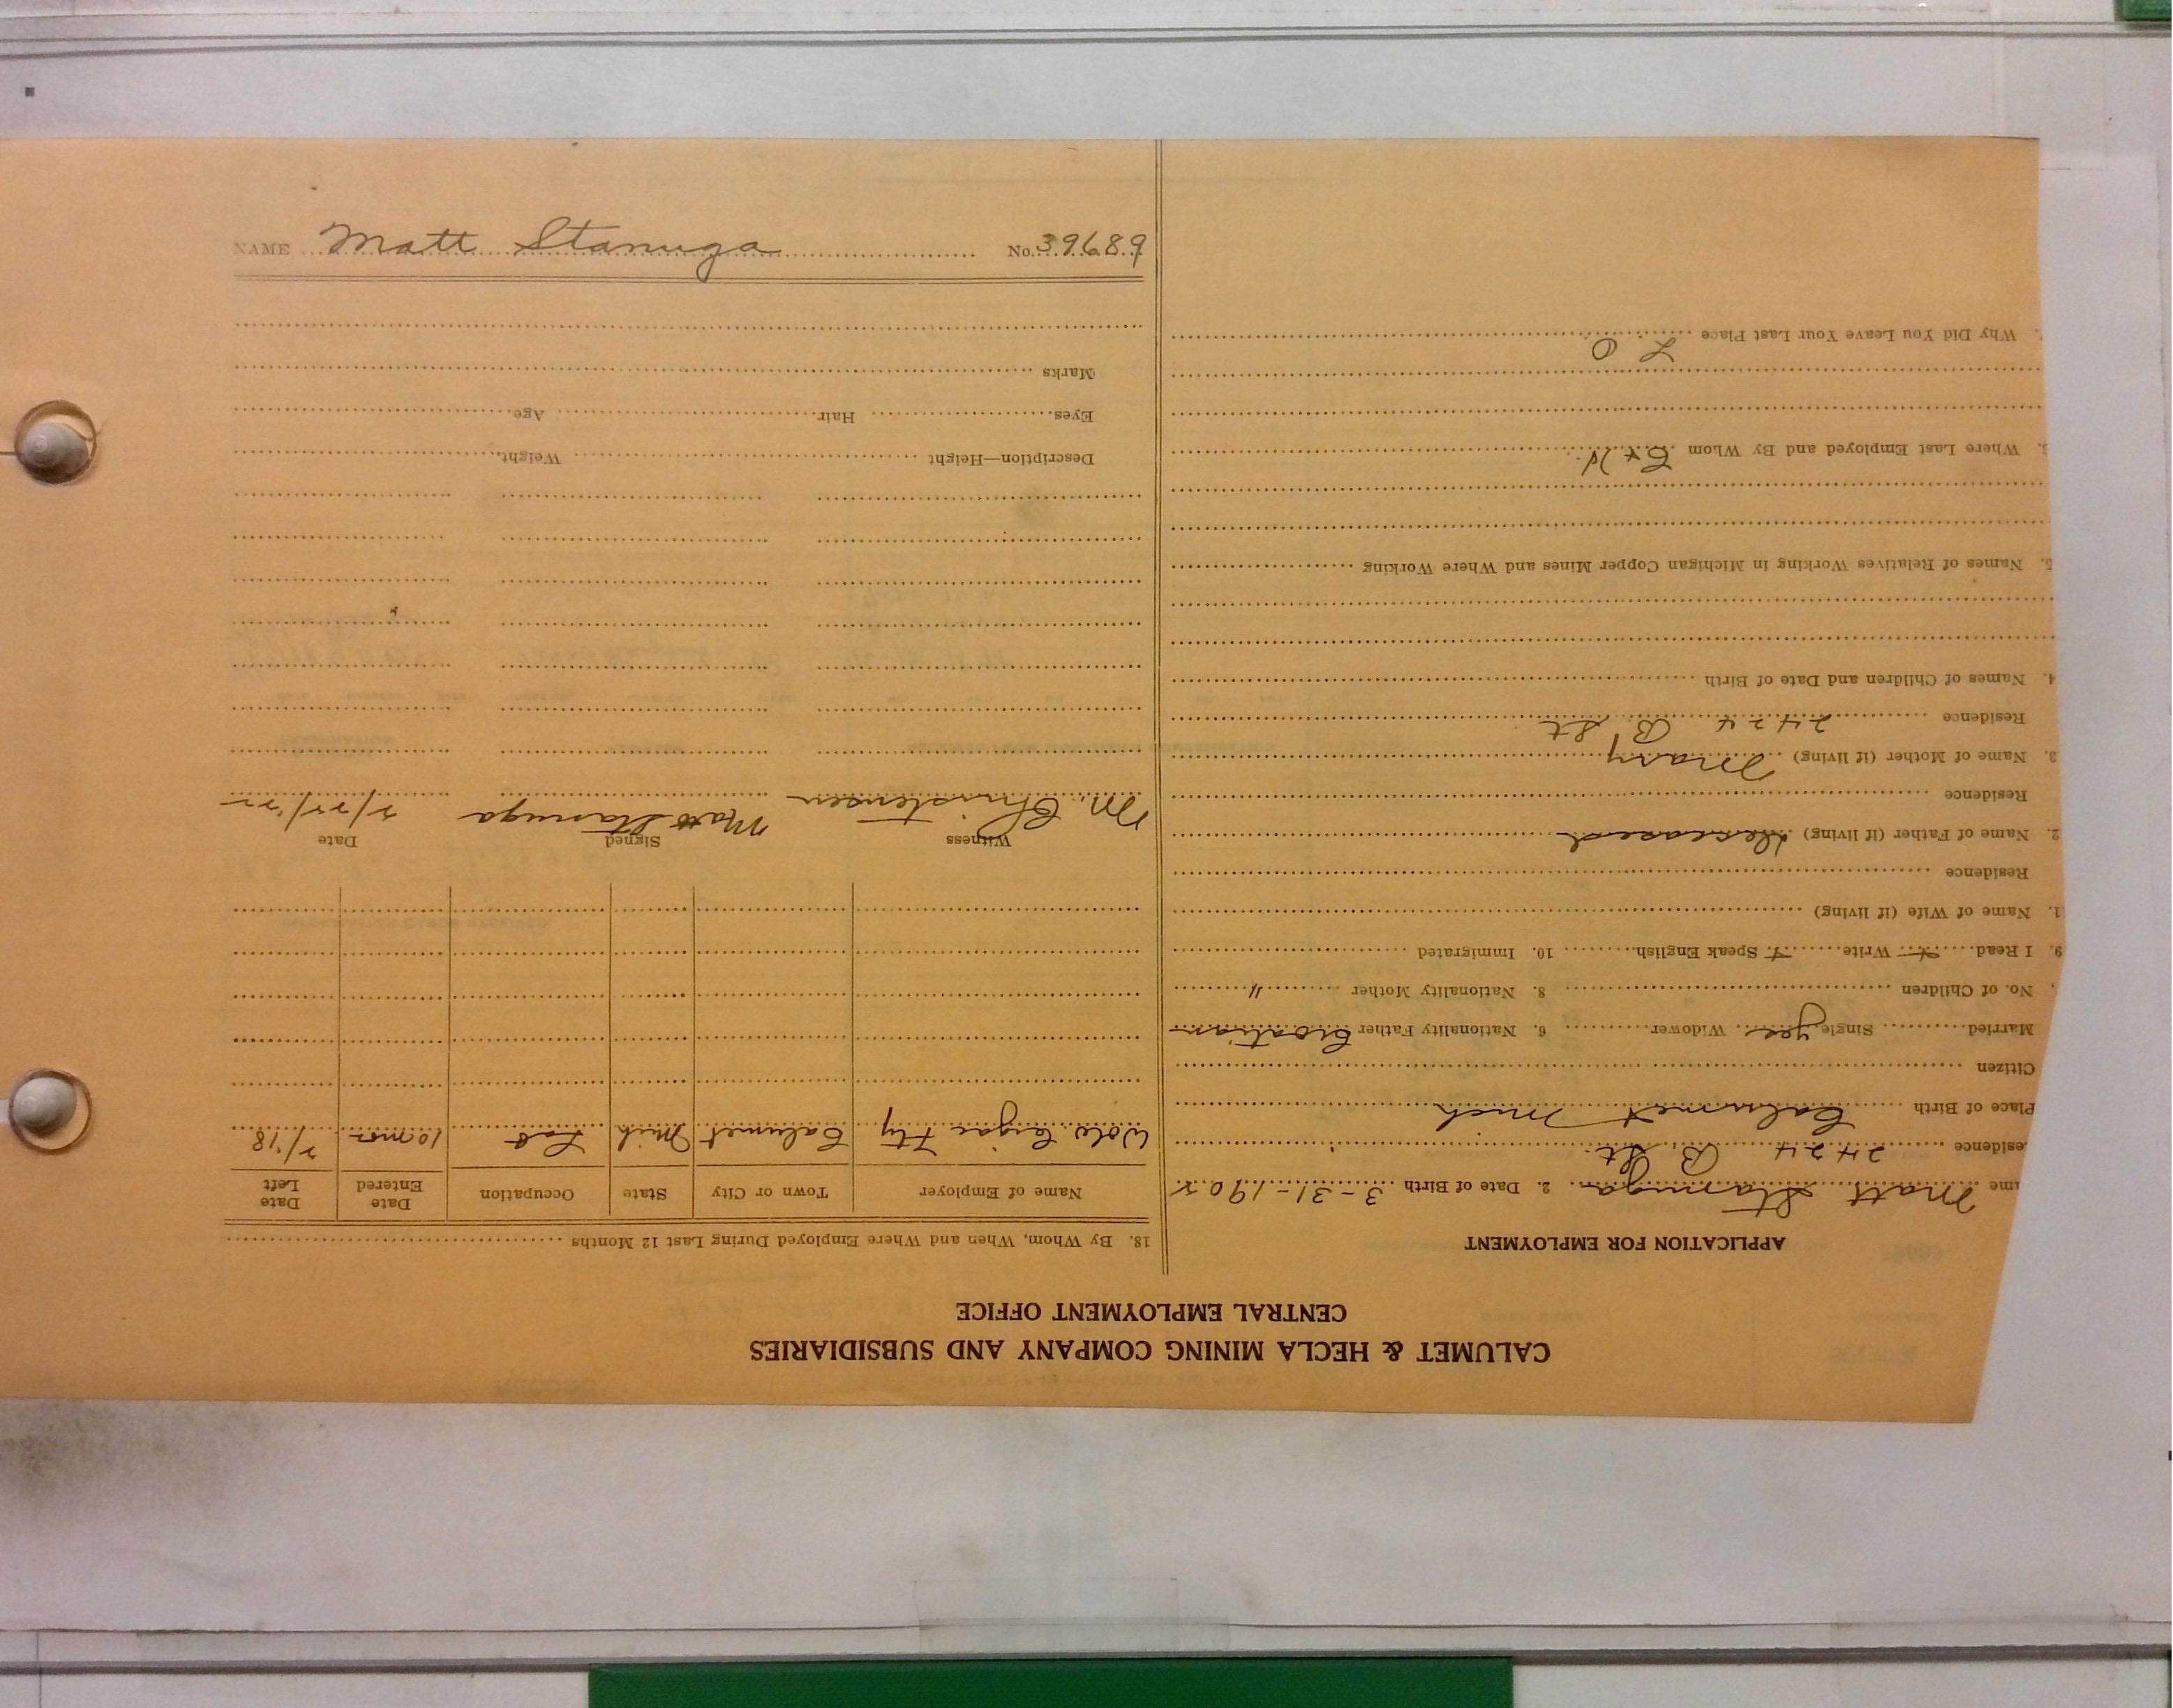 CALUMET & HECLA MINING COMPANY AND SUBSIDIARIES
CENTRAL EMPLOYMENT OFFICE
APPLICATION FOR EMPLOYMENT
ame Matt Stanuga 2. Date of Birth 3-31-190
esidence 2424 B St.
Place of Birth Calumet Mich
Citizen
Married Single yes Widower 6. Nationality Father Croatian
. No. of Children 8. Nationality Mother "
9. I Read Write Speak English 10. Immigrated
1. Name of Wife (if living)
Residence
2. Name of Father (if living) Deceased
Residence
3. Name of Mother (if living) Mary
Residence 2424 B St
4. Names of Children and Date of Birth
5. Names of Relatives Working in Michigan Copper Mines and Where Working
. Where Last Employed and By Whom
. Why Did You Leave Your Last Place
L O
18. By Whom, When and Where Employed During Last 12 Months
Name of Employer Town or City State Occupation Date Entered Date Left
Cigar Calumet Mich Lab 10 mos /18
Witness Signed Date
M. Christensen Matt Stanuga
Description—Height Weight
Eyes Hair Age
Marks
NAME Matt Stanuga No. 39689